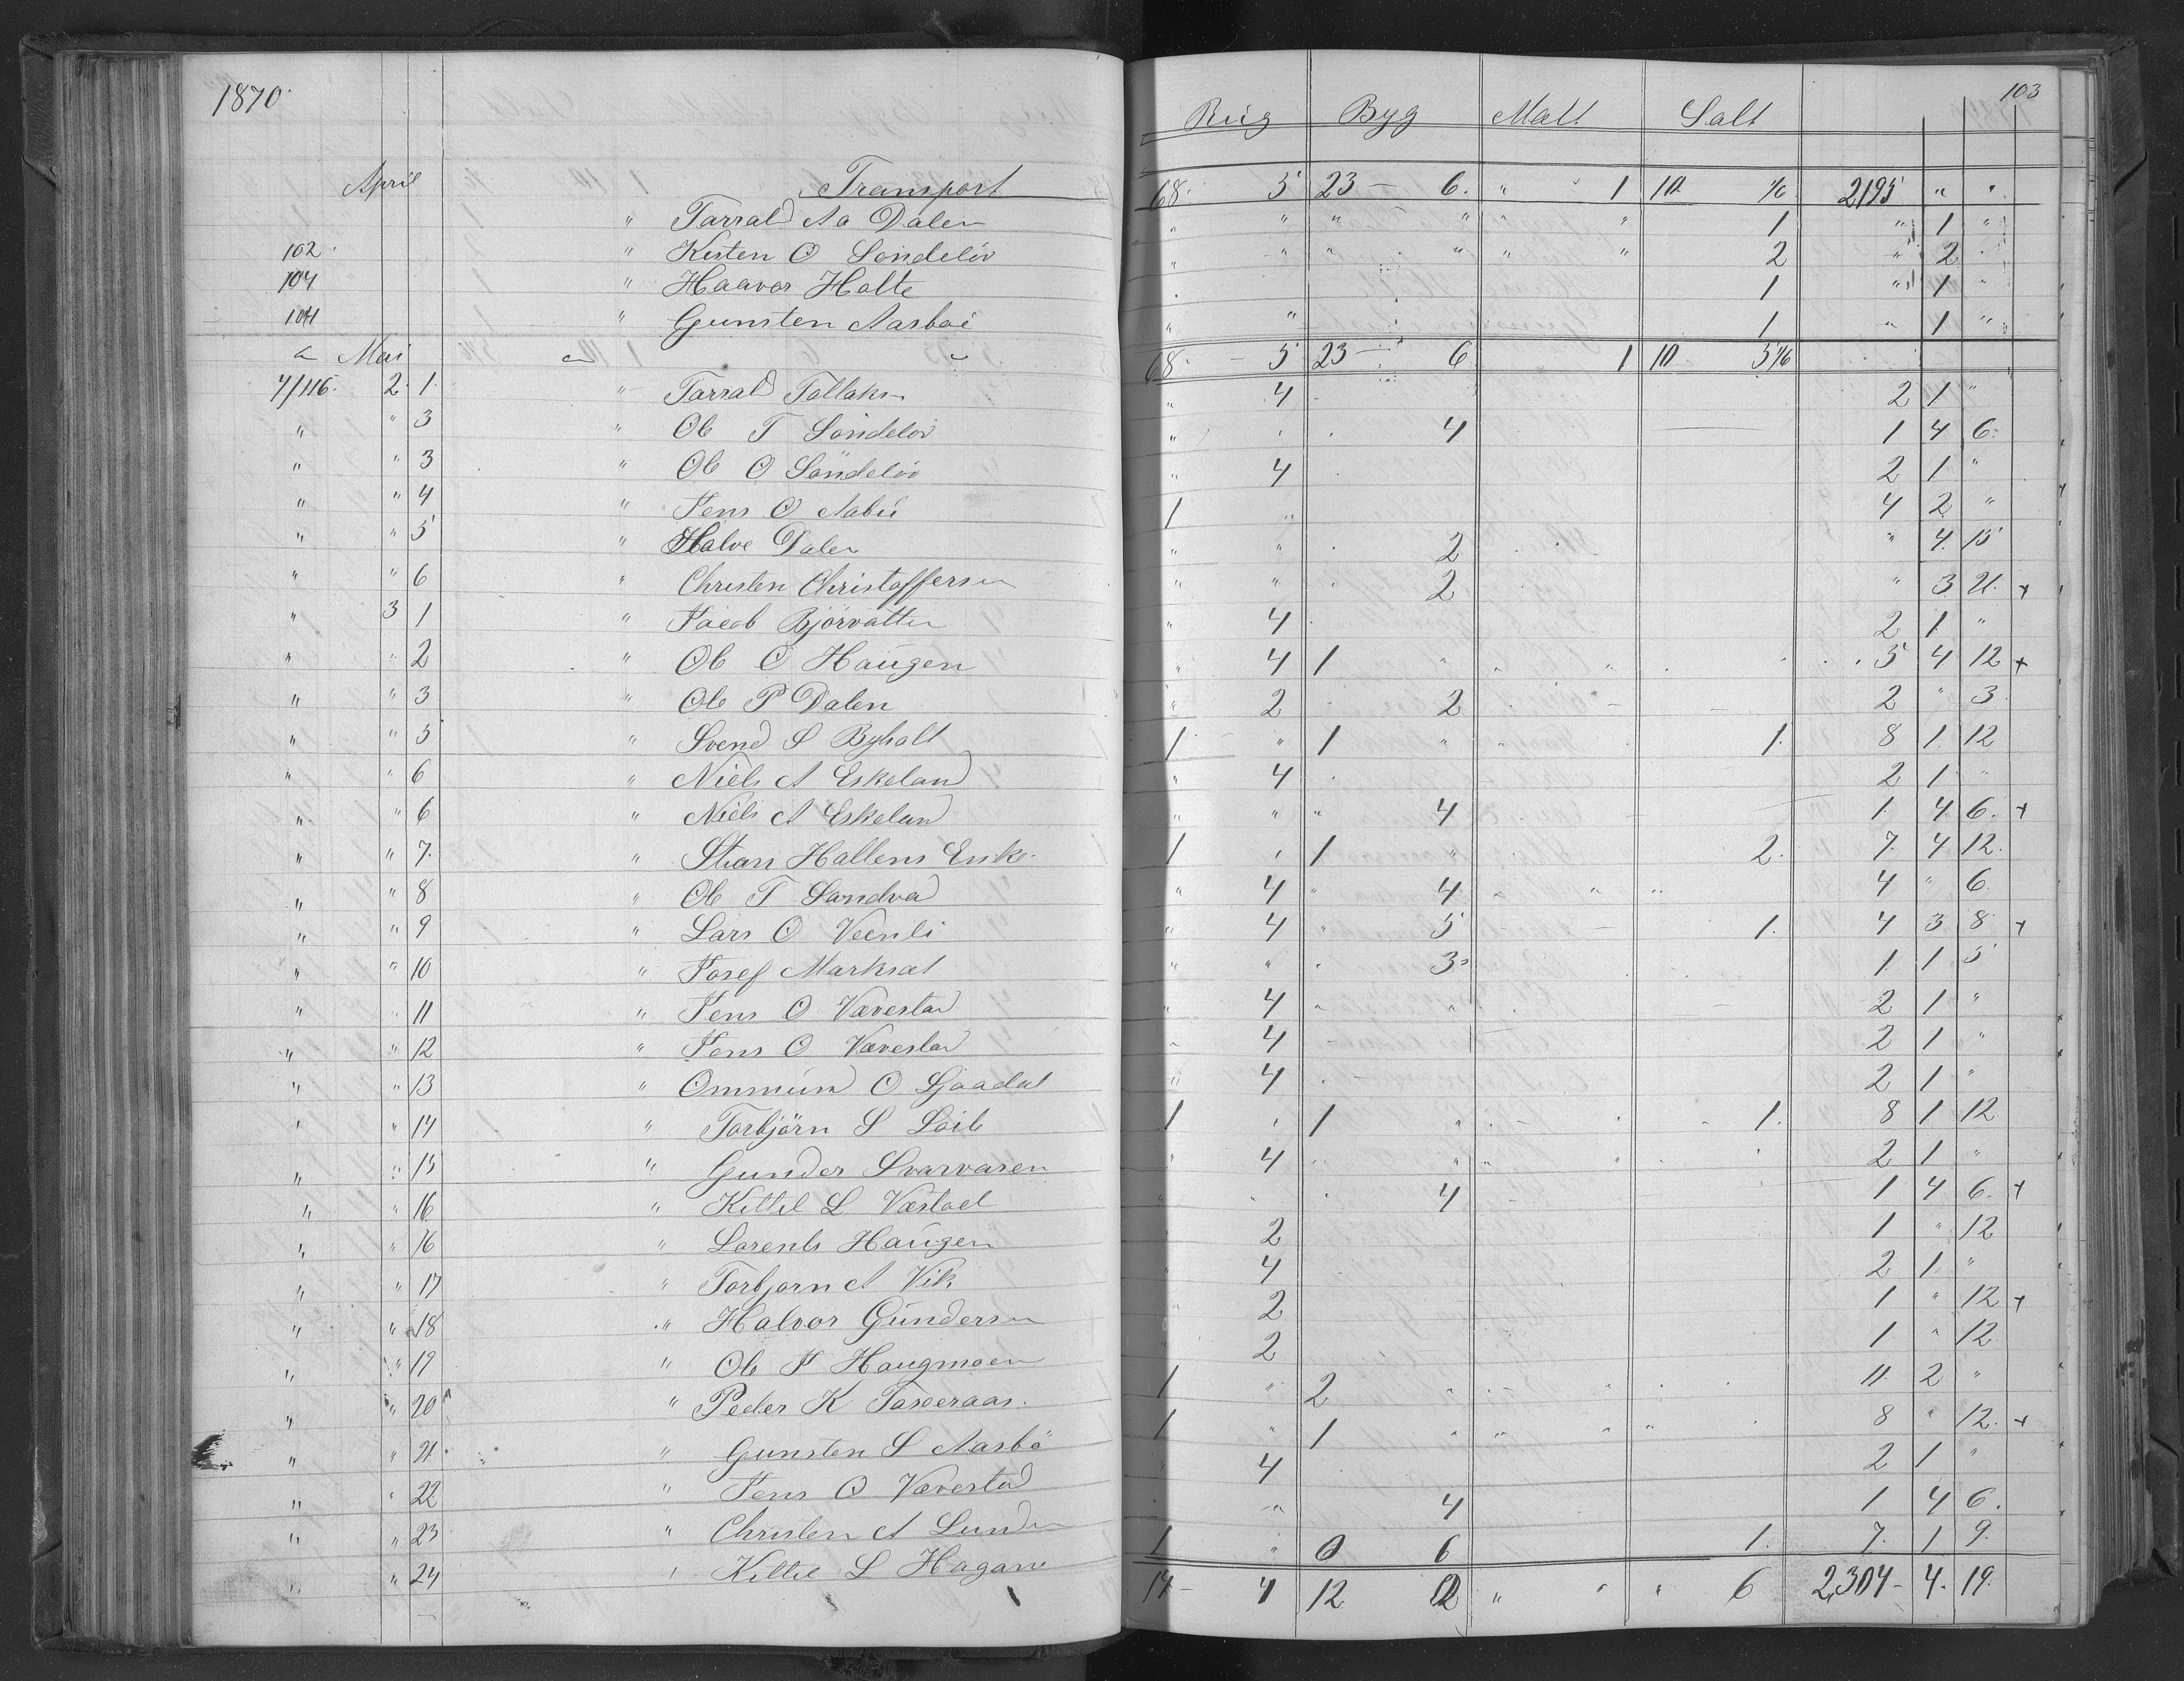 1870
103
Rug Byg Malt Salt
April Transport 68 5 23 - 6 " " 1 10 2195 " "
" Tarrald Aa Dalen " " " " " " 1 " 1 "
102 " Kisten O Söndelöv " " " " " " 2 " 2
104 " Haavor Holte 1 " 1 "
104 " Gunsten Aasboe " " 1 " 1 "
Mai 68 - 5 23 - 6 1 10
4/116 2 1 " Tarrald Tallaksn " 4 2 1 "
" " 3 " Ole T Söndelöv " 4 1 4 6
" " 3 " Ole O Söndelöv " 4 2 1 "
" " 4 " Jens O Aabü 1 " 4 2 "
" " 5 " Halve Dalen " " 2 " 4 15
" " 6 " Christen Christoffersen " " 2 " 3 21 +
" 3 1 " Jacob Björvatten " 4 2 1 "
" " 2 " Ole O Haugen " 4 1 " " " 5 4 12 +
" " 3 " Ole P Dalen " 2 2 2 " 3
" " 5 " Svend S Byholt 1 " 1 " " 1 8 1 12
" " 6 " Niels A Eskeland " 4 2 1 "
" " 6 " Niels A Eskeland " " " 4 1 4 6 +
" " 7 " Stian Hallens Enke 1 " 1 " 2 7 4 12
" " 8 " Ole T Sandvad " 4 " 4 " " " 4 " 6
" " 9 " Lars O Veenli " 4 " 5 1 4 3 8 +
" " 10 " Josef Marksæt " " " 3 1 1 5
" " 11 " Jens O Vævestad " 4 " " 2 1 "
" " 12 " Jens O Vævestad " 4 2 1 "
" " 13 " Ommund O Gjaadal " 4 2 1 "
" " 14 " Torbjörn S 1 " 1 " 1 8 1 12
" " 15 " Gunder Svarvaren " 4 " " " " 2 1 "
" " 16 " Kittel L Væstad 4 1 4 6 +
" " 16 " Lorents Haugen 2 1 " 12
" " 17 " Torbjorn A Vik 4 2 1 "
" " 18 " Halvor Gundersen " 2 1 " 12 +
" " 19 " Ole J Haugmoen " 2 1 " 12
" " 20 " Peder K 1 " 2 " " " 11 2 "
" " 21 " Gunsten S Aasbö 1 " 1 " " " " 8 " 12 +
" " 22 " Jens O Vævestad " 4 2 1 "
" " 23 " Christen A Lunden " 4 1 4 6
" " 24 " Kittel L Hagane 1 " 0 6 1 7 1 9
14 - 4 12 2 " " " 6 2304 - 4 19